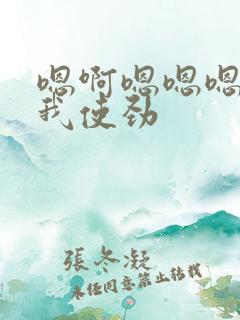 嗯啊嗯嗯嗯
我使劲
張冬凝
未任同意禁止转载